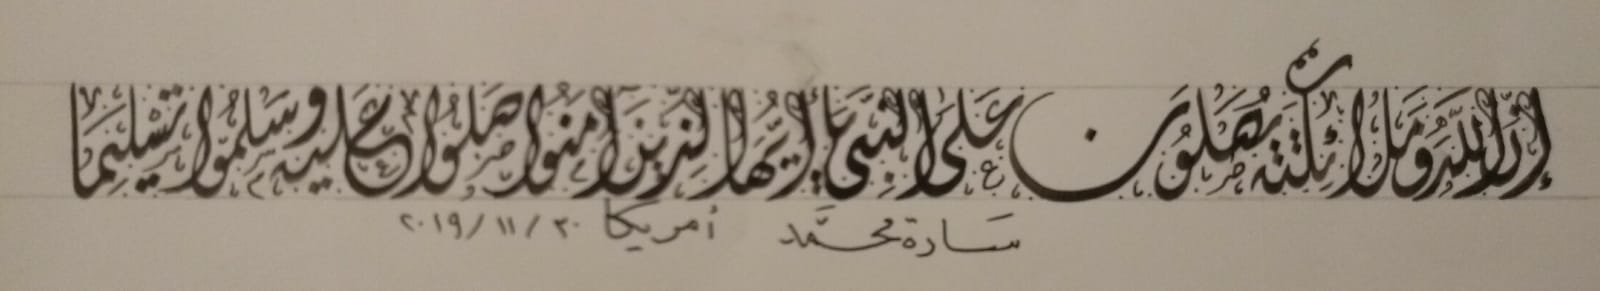 إن الله وملائكته يصلون على النبي يا أيها الذين آمنوا صلوا عليه وسلموا تسليما
سارة محمد أمريكا ٢٠١٩/١١/٣٠